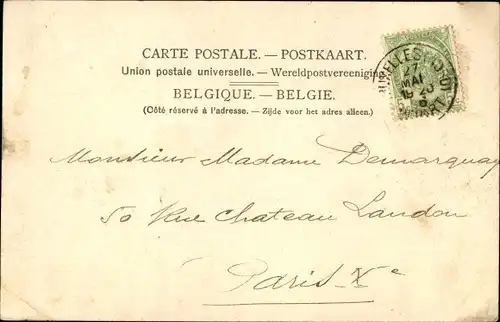 CARTE POSTALE. — POSTKAART.
Union postale universelle. — Wereldpostvereeniging
BELGIQUE. — BELGIE.
(Côté réservé à l'adresse. — Zijde voor het adres alleen.)
27
MAI
Monsieur Madame Demarquay
50 Rue Chateau Landon
Paris Xe